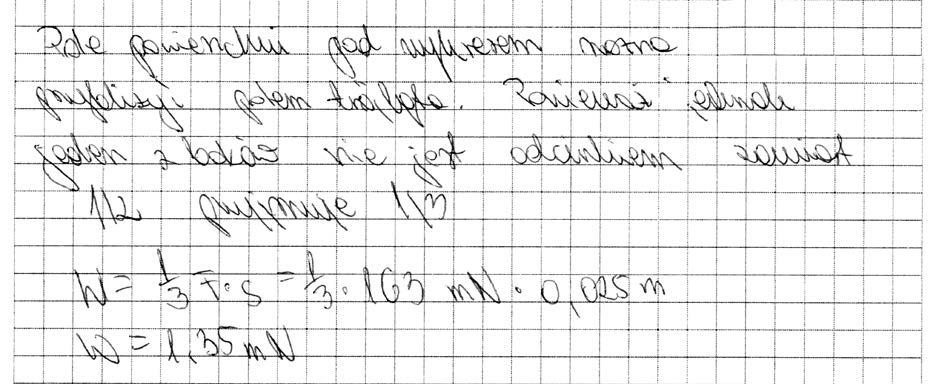 Pole powierzchni pod wykresem można
przybliżyć polem trójkąta. Ponieważ jednak
jeden z boków nie jest odcinkiem zamiast
1/2 przyjmuje 1/3
W = 1/3 F · s = 1/3 · 163 mN · 0,025 m
W = 1,35 mN